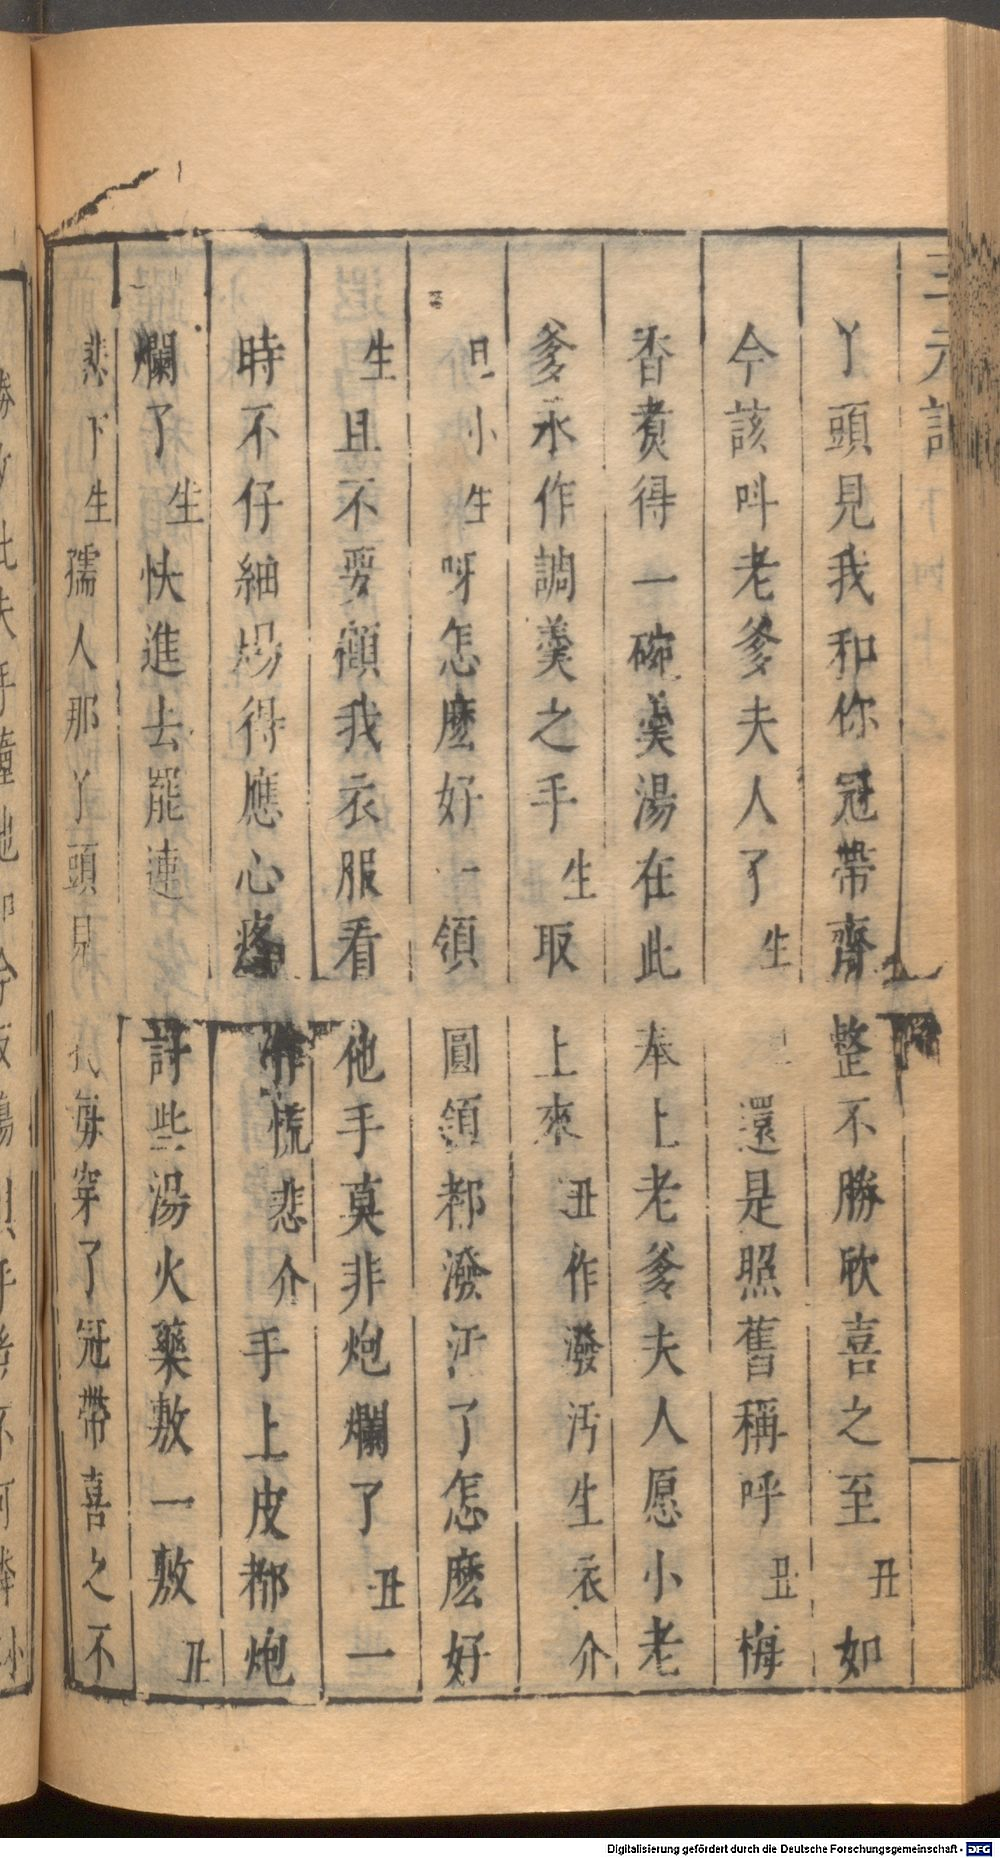 三元記
丫頭見我和你冠帶齊整不勝欣喜之至丑如
今該呌老爹夫人了生旦還是照舊稱呼丑梅
香煑得一碗羹湯在此奉上老爹夫人愿小老
爹永作調羹之手生取上來丑作潑污生衣介
旦小生呀怎麽好一領圓領都潑污了怎麽好
生且不要顧我衣服看他手莫非炮爛了丑一
時不仔細㷪得應心疼作慌悲介手上皮都炮
爛了生快進去罷連討些湯火藥敷一敷丑
悲下生孺人那丫頭見我每穿了冠帶喜之不
Digitalisierung gefördert durch die Deutsche Forschungsgemeinschaft - DFG